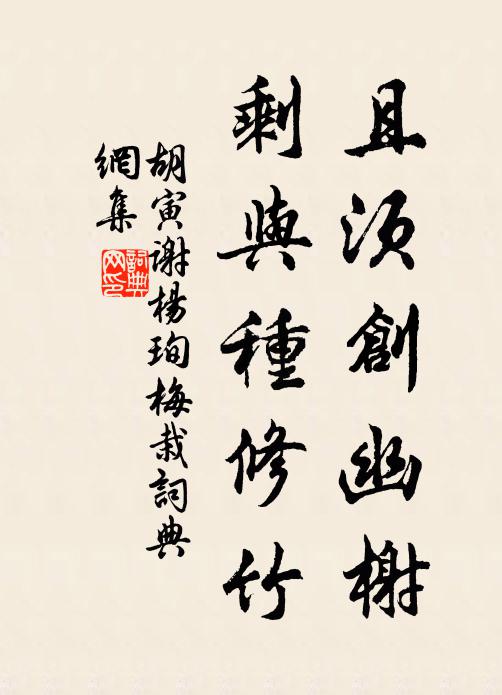 且須創幽榭
剩與種修竹
胡寅謝楊珣梅栽詞典
網集
詞典
网印